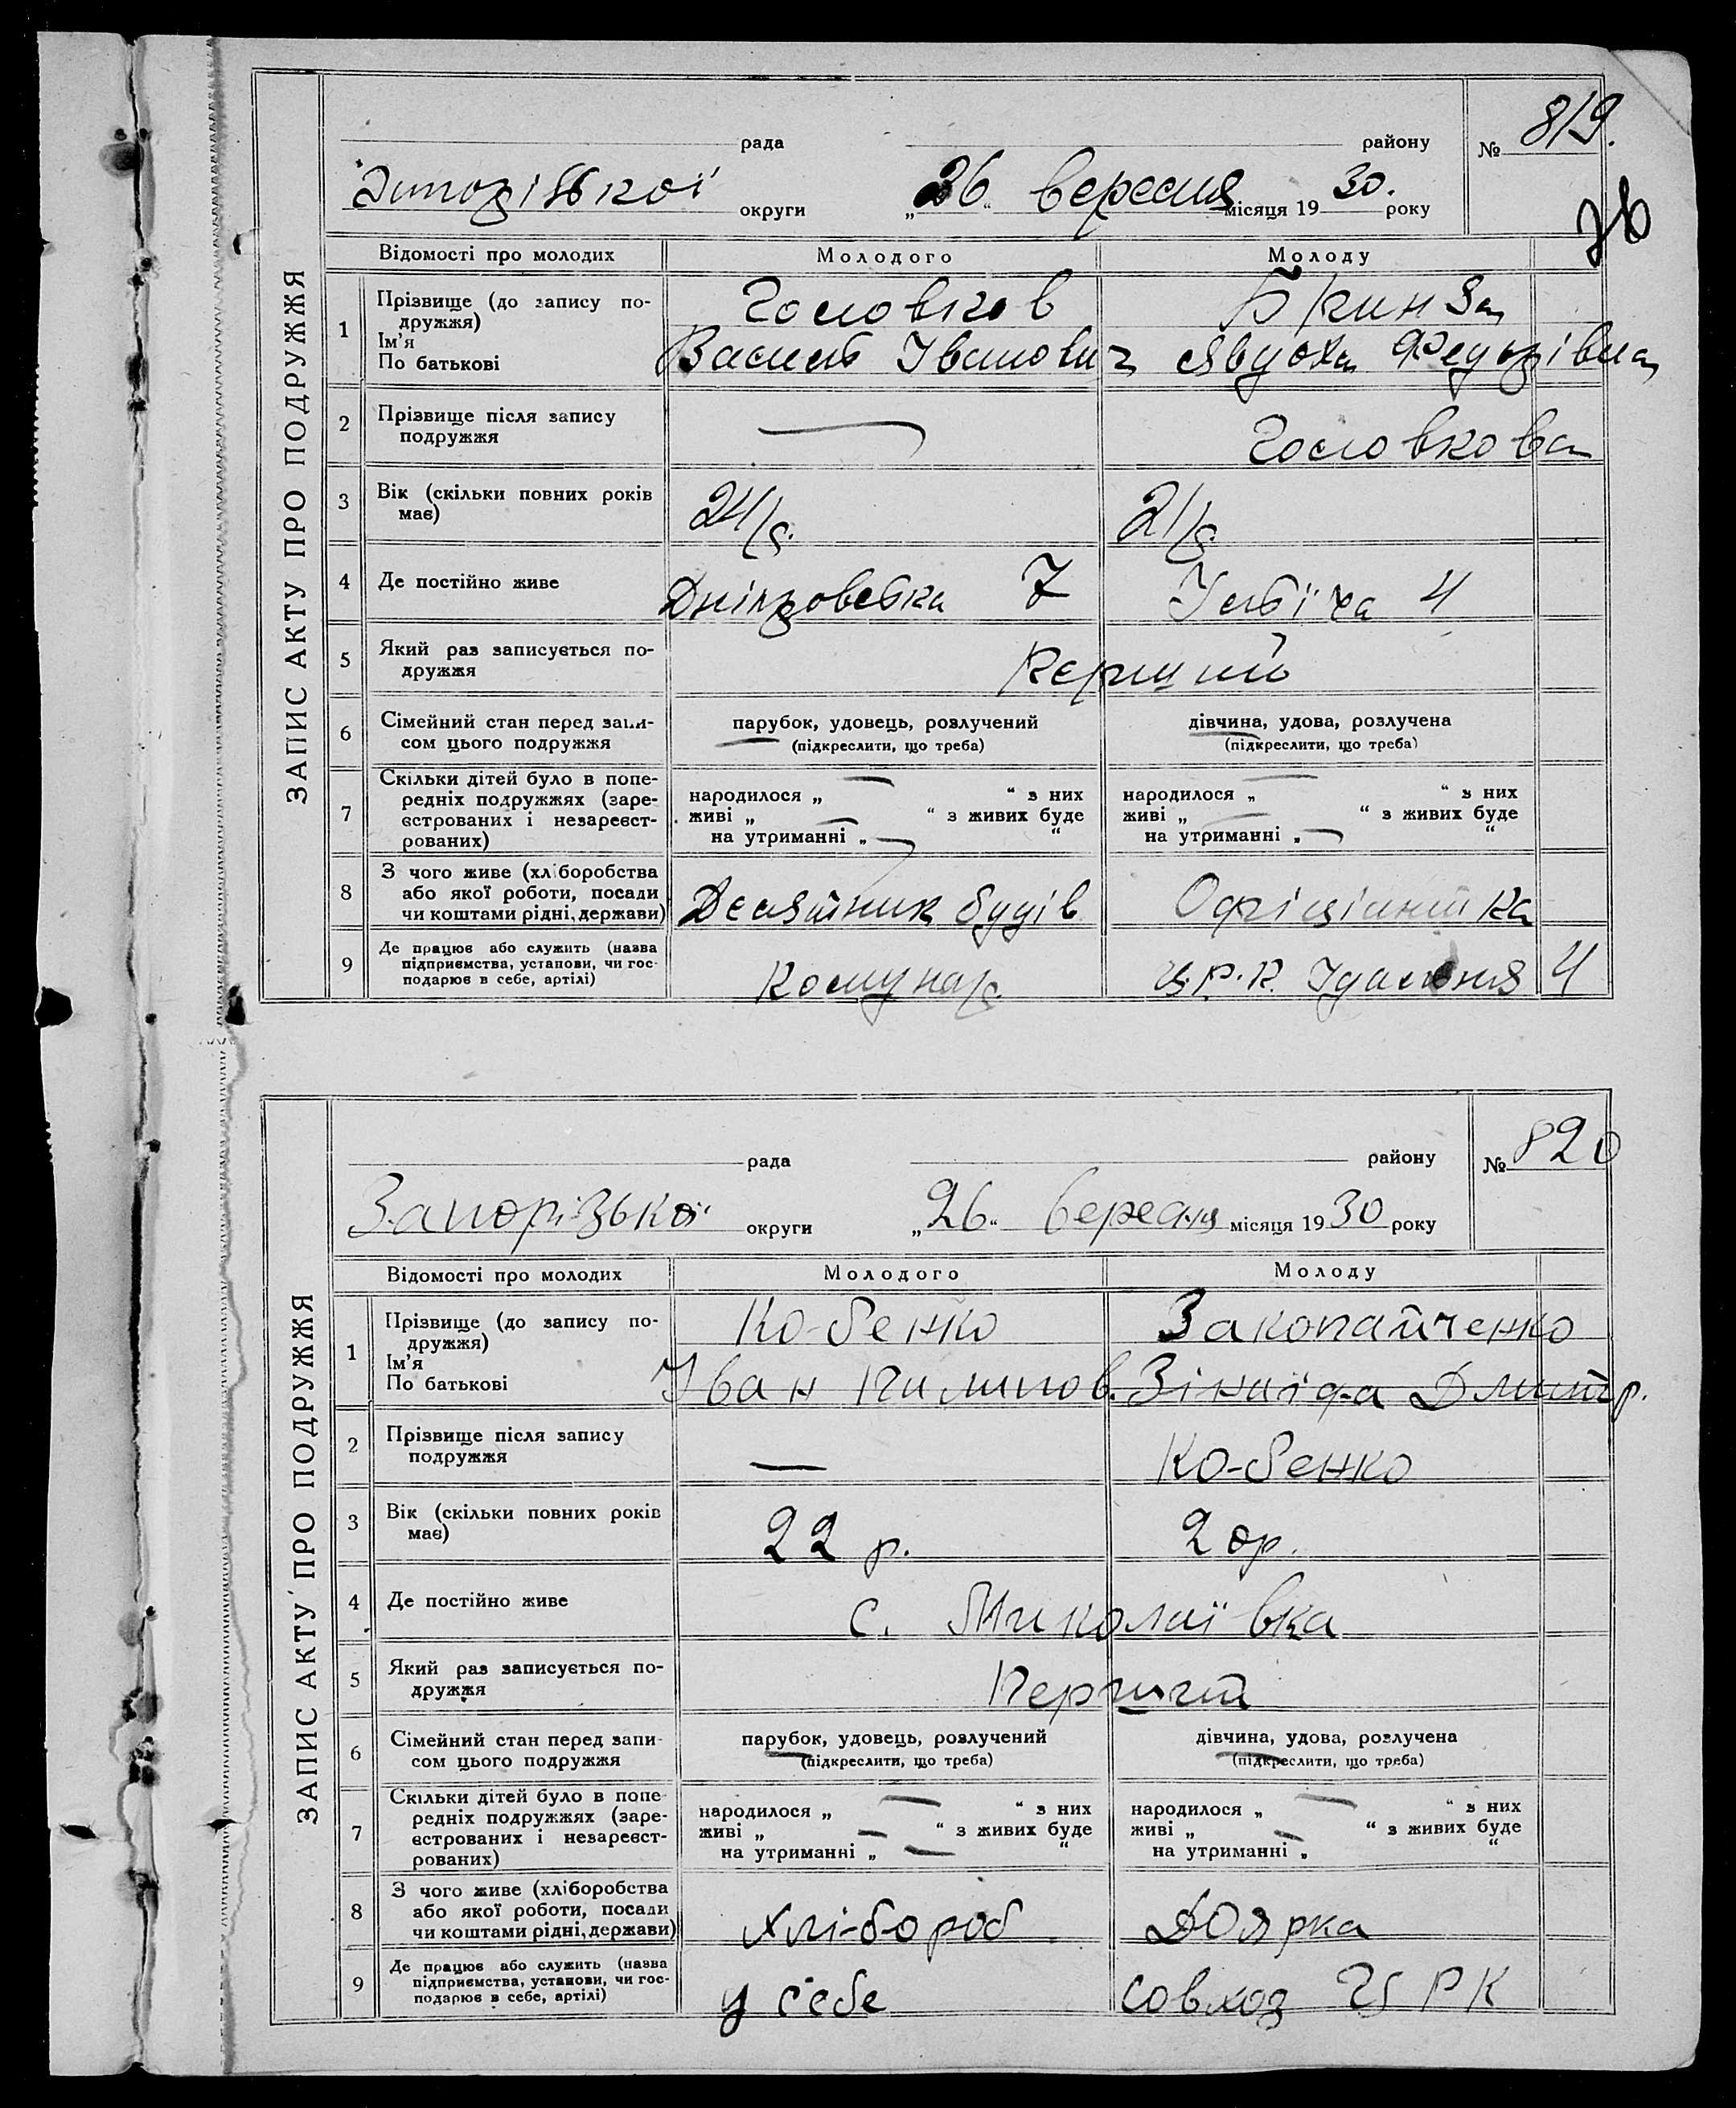 ЗАПИС АКТУ ПРО ПОДРУЖЖЯ
рада району № 819.
округи „26“ вересня місяця 1930. року
Відомості про молодих Молодого Молоду
1 Прізвище (до запису по-
дружжя)
Ім'я
По батькові
Головков Бринза
Василь Іванович Явдоха Федорівна
2 Прізвище після запису
подружжя
— Головкова
3 Вік (скільки повних років
має)
24/р. 21/р.
4 Де постійно живе
Дніпровська 7 4
5 Який раз записується по-
дружжя
Перший
6 Сімейний стан перед запи-
сом цього подружжя
парубок, удовець, розлучений дівчина, удова, розлучена
(підкреслити, що треба) (підкреслити, що треба)
7 Скільки дітей було в попе-
редніх подружжях (заре-
єстрованих і незареєст-
рованих)
народилося „ — “ з них народилося „ — “ з них
живі „ — “ з живих буде живі „ — “ з живих буде
на утриманні „ — “ на утриманні „ — “
8 З чого живе (хліборобства
або якої роботи, посади
чи коштами рідні, держави)
Десятник будів Офіціянтка
9 Де працює або служить (назва
підприємства, установи, чи гос-
подарює в себе, артілі)
Комунар Ц.Р.К. Їдальня 4
ЗАПИС АКТУ ПРО ПОДРУЖЖЯ
рада району № 820
Запорізької округи „26“ вересня місяця 1930 року
Відомості про молодих Молодого Молоду
1 Прізвище (до запису по-
дружжя)
Ім'я
По батькові
Ко-бенко Закопайченко
Іван Пилипов. Зінаїда Дмитр.
2 Прізвище після запису
подружжя
— Ко-бенко
3 Вік (скільки повних років
має)
22 р. 20р.
4 Де постійно живе
с. Миколаївка
5 Який раз записується по-
дружжя
Перший
6 Сімейний стан перед запи-
сом цього подружжя
парубок, удовець, розлучений дівчина, удова, розлучена
(підкреслити, що треба) (підкреслити, що треба)
7 Скільки дітей було в попе-
редніх подружжях (заре-
єстрованих і незареєст-
рованих)
народилося „ — “ з них народилося „ — “ з них
живі „ — “ з живих буде живі „ — “ з живих буде
на утриманні „ — “ на утриманні „ “
8 З чого живе (хліборобства
або якої роботи, посади
чи коштами рідні, держави)
хлі-бороб Доярка
9 Де працює або служить (назва
підприємства, установи, чи гос-
подарює в себе, артілі)
у себе совхоз ЦРК